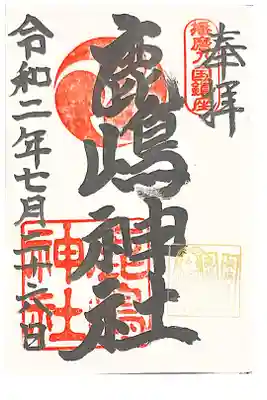 奉拝
播磨乃国鎮座
鹿嶋神社
神社
令和二年七月二十六日